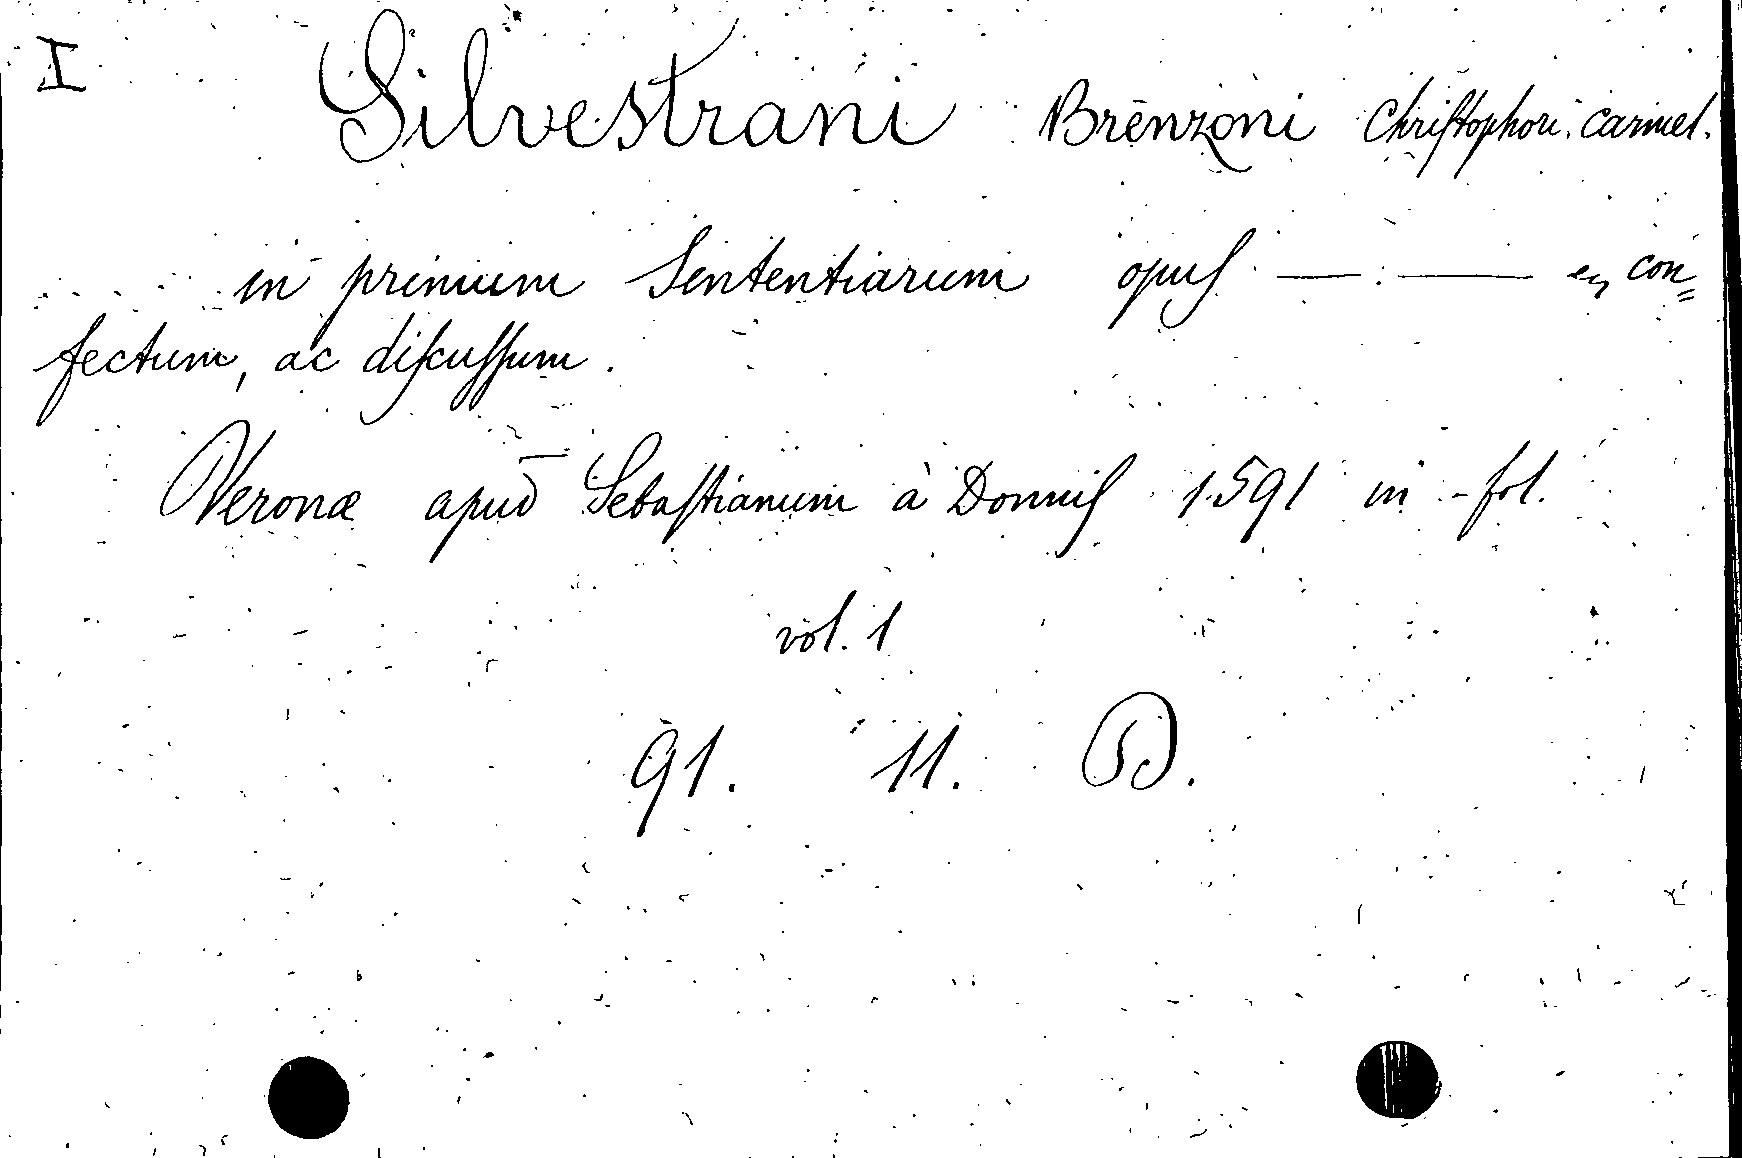 I Silvestrani Brenzoni Chriſtophori. Carmel.
in primum Sententiarum opuſ — . — eq con=
fectum, ac diſcuſſum.
Veronæ apud Sebaſtianum à Donniſ 1591 in-fol.
vol. 1
91. 11. D.